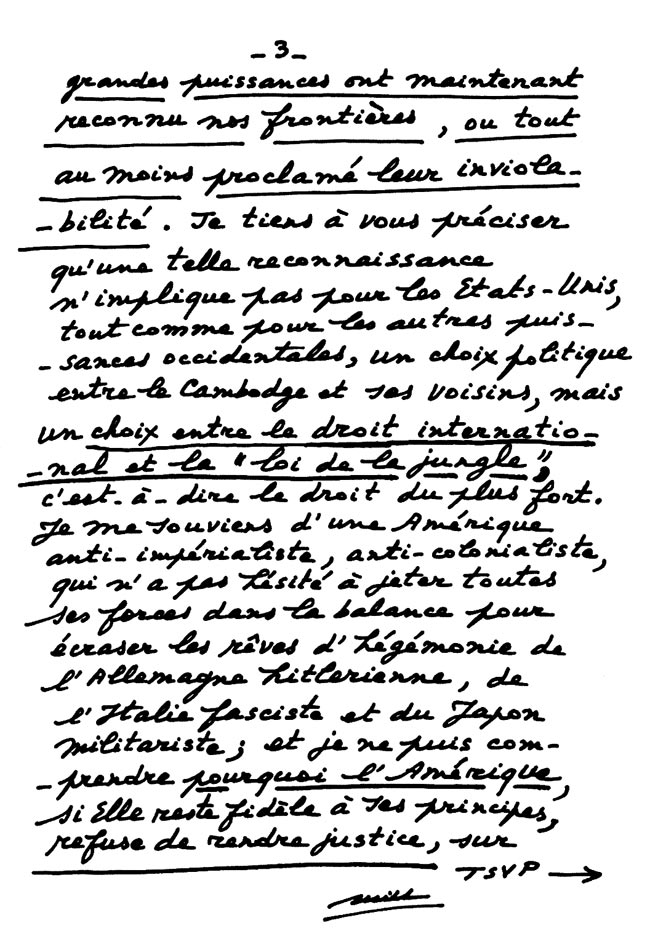 - 3 -
grandes puissances ont maintenant
reconnu nos frontières, ou tout
au moins proclamé leur inviola-
- bilité. Je tiens à vous préciser
qu'une telle reconnaissance
n'implique pas pour les Etats-Unis,
tout comme pour les autres puis-
- sances occidentales, un choix politique
entre le Cambodge et ses voisins, mais
un choix entre le droit internatio-
- nal et la "loi de la jungle",
c'est-à-dire le droit du plus fort.
Je me souviens d'une Amérique
anti-impérialiste, anti-colonialiste,
qui n'a pas hésité à jeter toutes
ses forces dans la balance pour
écraser les rêves d'hégémonie de
l'Allemagne hitlerienne, de
l'Italie fasciste et du Japon
militariste; et je ne puis com-
- prendre pourquoi l'Amérique,
si Elle reste fidèle à ses principes,
refuse de rendre justice, sur
TSVP →